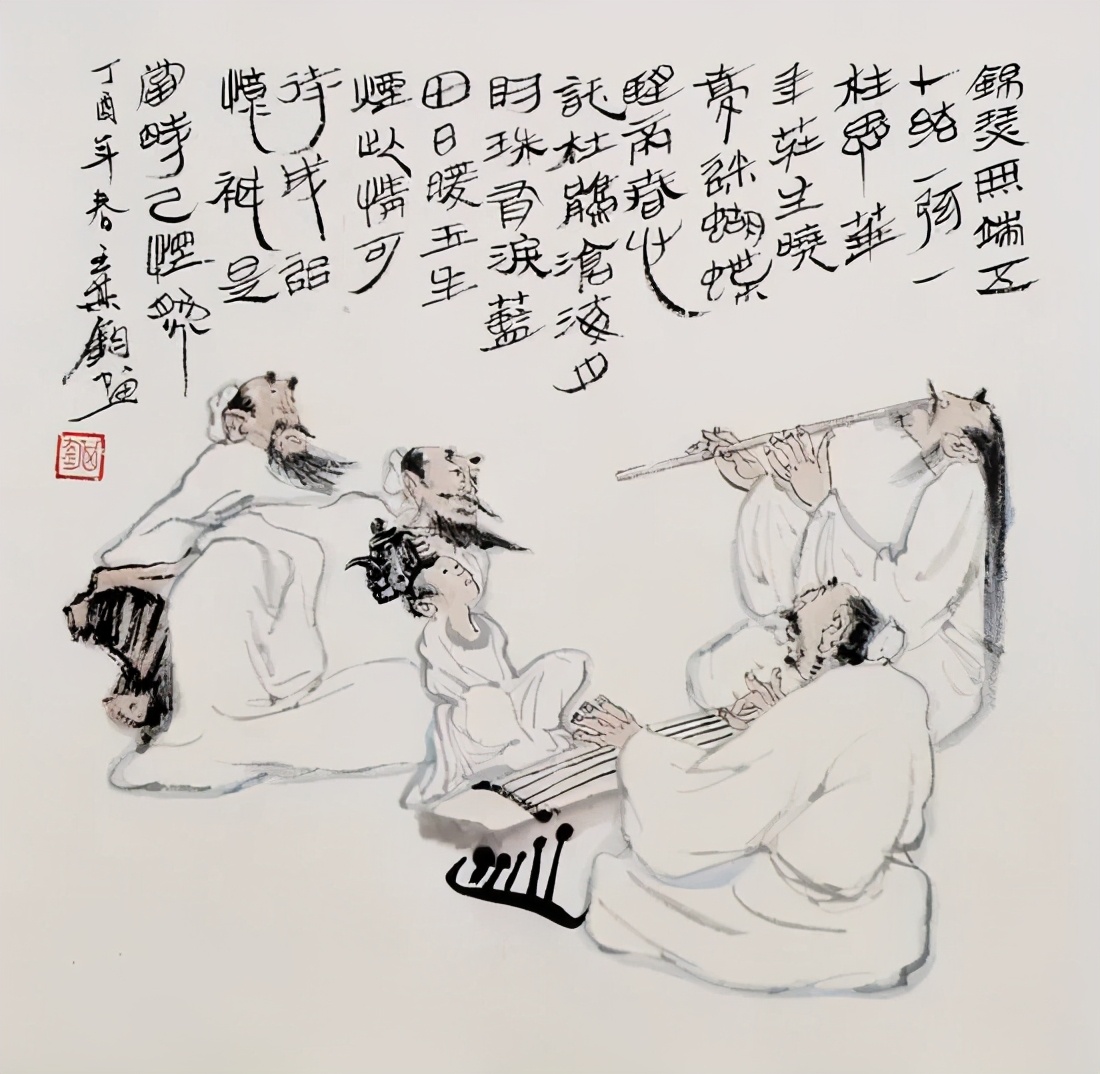 錦瑟無端五
十絃一弦一
柱思華
年莊生曉
夢迷蝴蝶
望帝春心
託杜鵑滄海月
明珠有淚藍
田日暖玉生
煙此情可
待成追
憶祇是
當時已惘然
丁酉年春